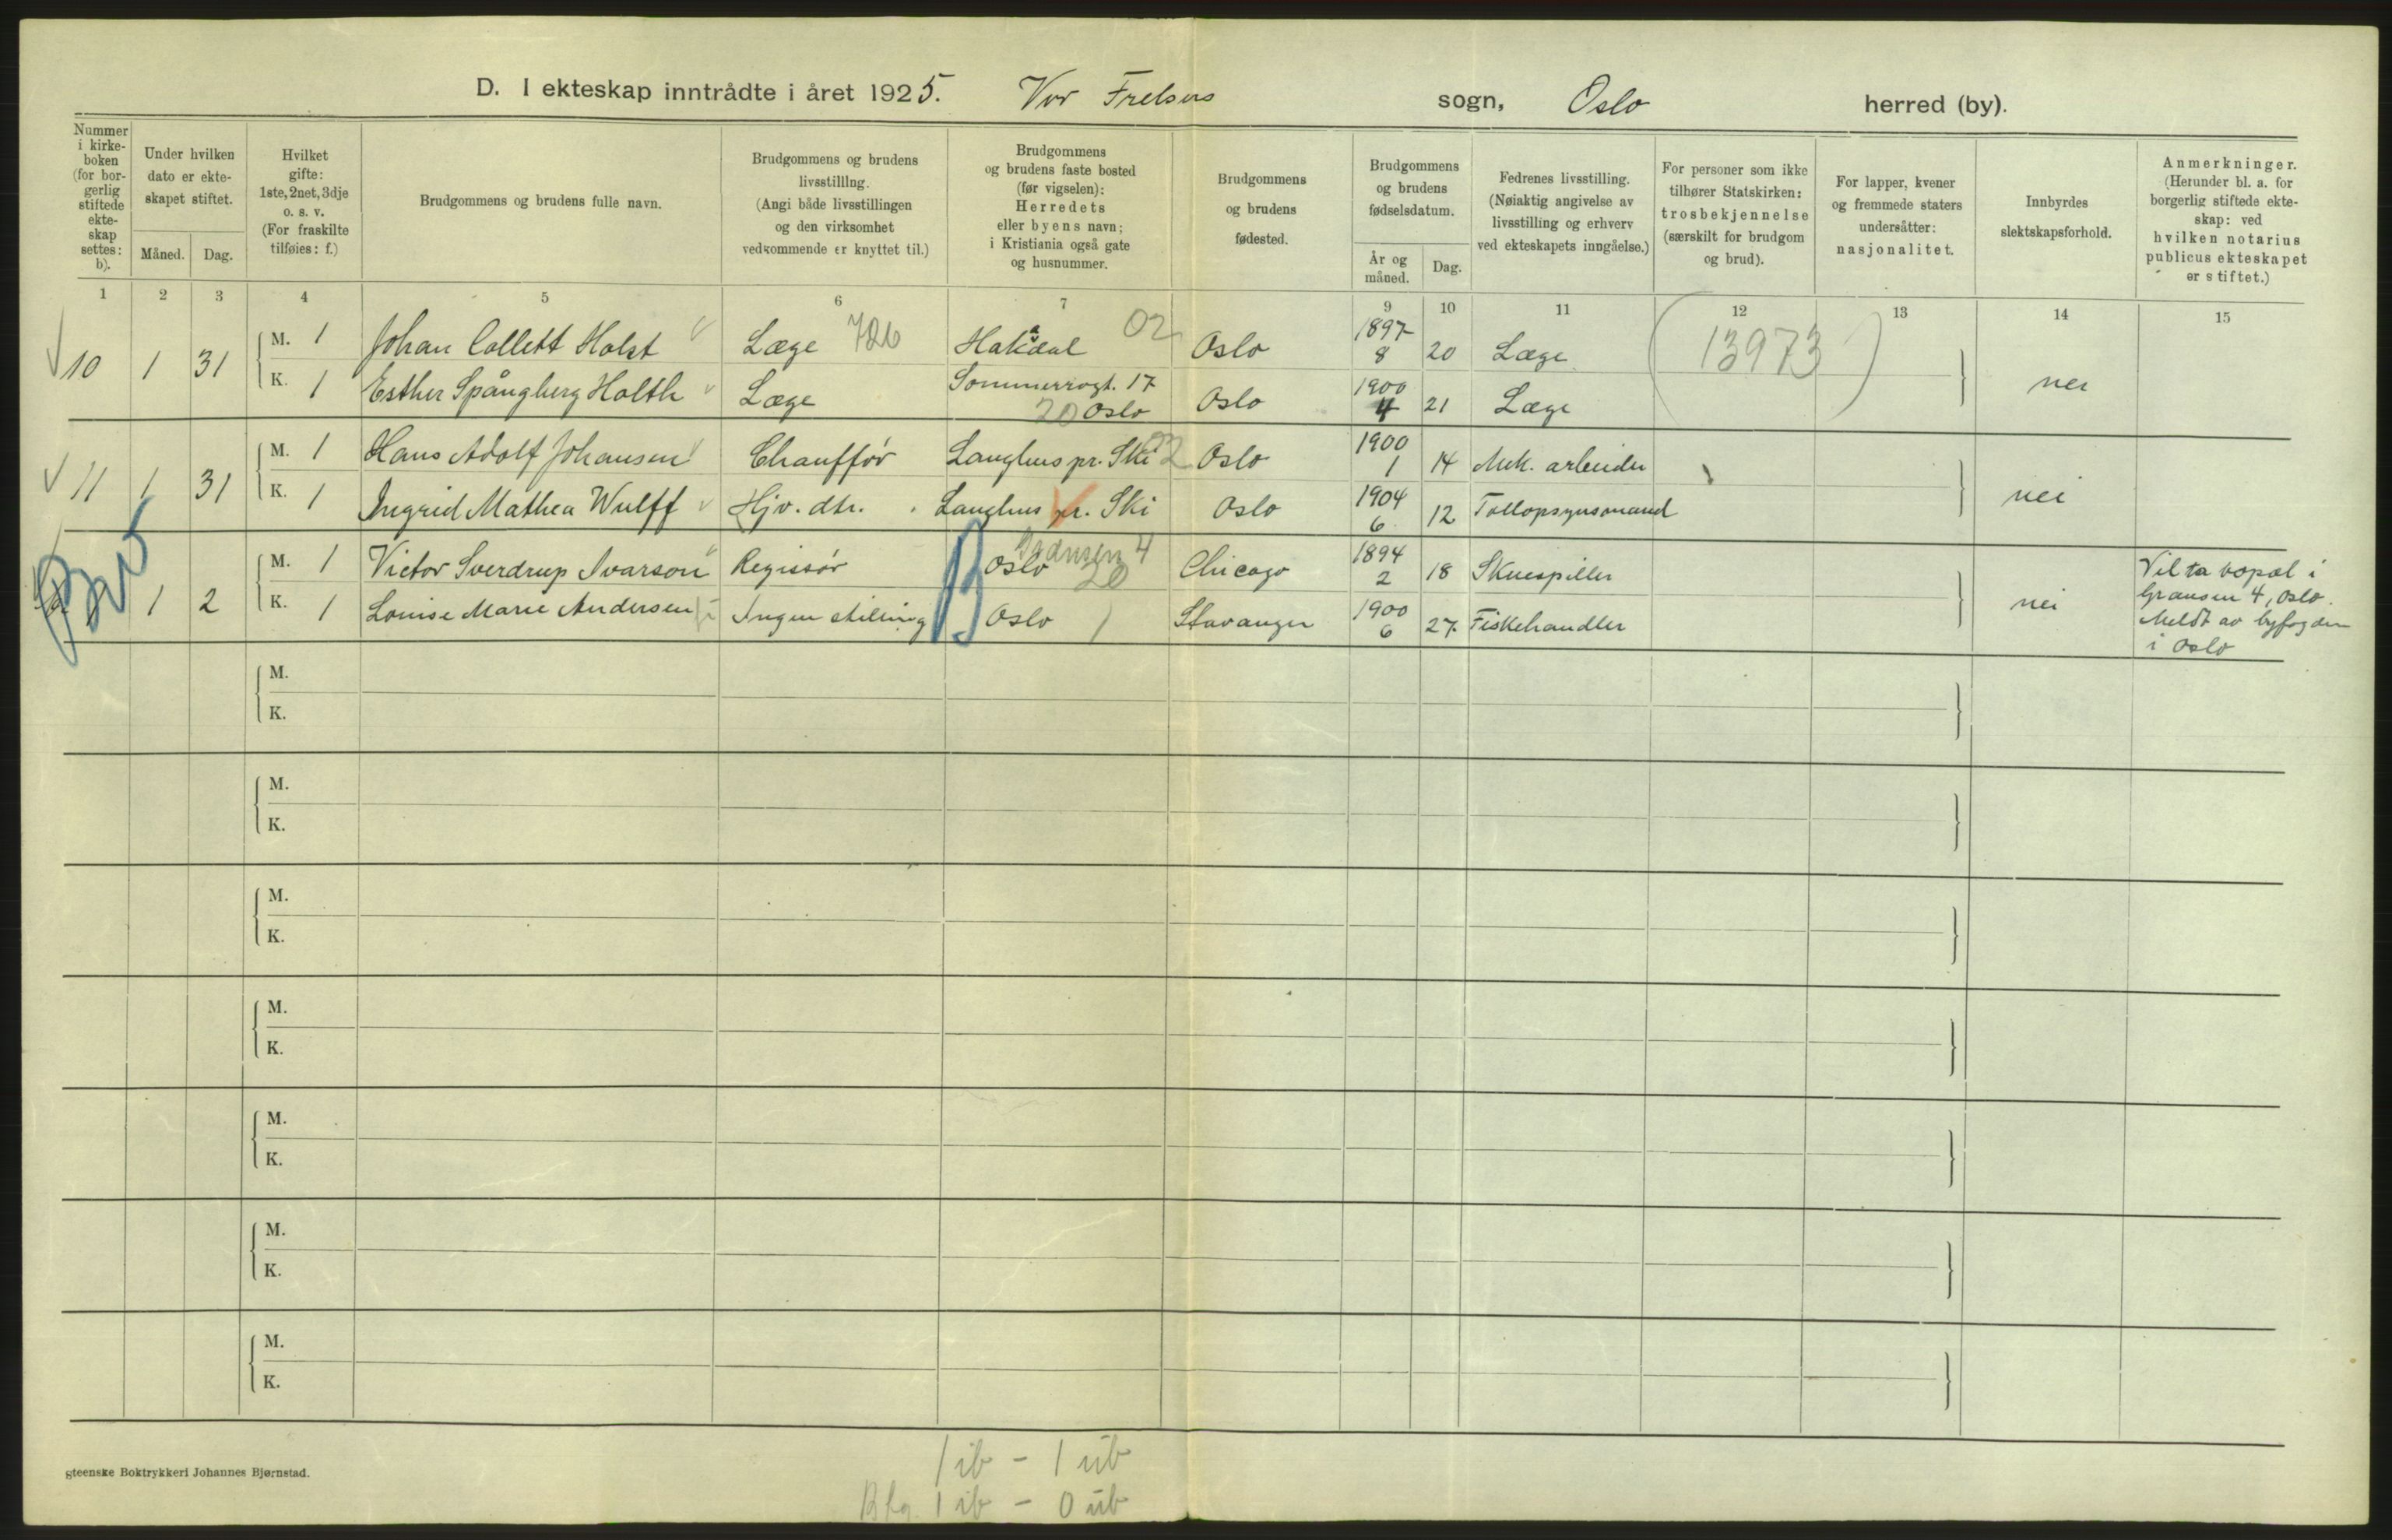 D. I ekteskap inntrådte i året 1925. Vor Frelsers sogn, Oslo herred (by).
Nummer i kirke-boken (for bor-gerlig stiftede ekte-skap settes: b).
Under hvilken dato er ekte-skapet stiftet.
Måned. Dag.
Hvilket gifte: 1ste, 2net, 3dje o. s. v. (For fraskilte tilføies: f.)
Brudgommens og brudens fulle navn.
Brudgommens og brudens livsstilling. (Angi både livsstillingen og den virksomhet vedkommende er knyttet til.)
Brudgommens og brudens faste bosted (før vigselen): Herredets eller byens navn; i Kristiania også gate og husnummer.
Brudgommens og brudens fødested.
Brudgommens og brudens fødselsdatum.
År og måned. Dag.
Fedrenes livsstilling. (Nøiaktig angivelse av livsstilling og erhverv ved ekteskapets inngåelse.)
For personer som ikke tilhører Statskirken: trosbekjennelse (særskilt for brudgom og brud).
For lapper, kvener og fremmede staters undersåtter: nasjonalitet.
Innbyrdes slektskapsforhold.
Anmerkninger. (Herunder bl. a. for borgerlig stiftede ekte-skap: ved hvilken notarius publicus ekteskapet er stiftet.)
1 2 3 4 5 6 7 9 10 11 12 13 14 15
10 1 31 M. 1 Johan Collett Holst Læge 726 Hakadal 02 Oslo 1897 8 20 Læge (13973)
K. 1 Esther Spångberg Holth Læge Sommerrogt. 17 20 Oslo Oslo 1900 4 21 Læge nei
11 1 31 M. 1 Hans Adolf Johansen Chauffør Langhus pr. Ski 02 Oslo 1900 1 14 Mek. arbeider
K. 1 Ingrid Mathea Wulff Hjv. dtr. Langhus pr. Ski Oslo 1904 6 12 Tollopsynsmand nei
1 2 M. 1 Victor Sverdrup Ivarson Regissør Oslo Grænsen 4 20 Chicago 1894 2 18 Skuespiller
K. 1 Louise Marie Andersen Ingen stilling Oslo 1 Stavanger 1900 6 27. Fiskehandler nei
Vil ta bopæl i
Grænsen 4, Oslo.
Meldt av byfogden
i Oslo
M.
K.
M.
K.
M.
K.
M.
K.
M.
K.
M.
K.
M.
K.
gteenske Boktrykkeri Johannes Bjørnstad.
1 ib - 1 ub
Bfg. 1 ib - 0 ub